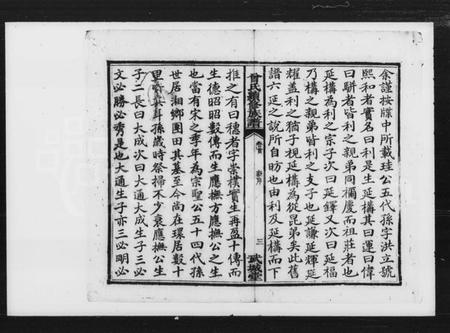 余謹按牒中所載珪公五代孫字洪立號
熙和者實名曰利是生延構其曰運曰偉
曰駢者皆利之親弟同禰慶而祖莊者也
延構為利之宗子次曰延鐸又次曰延福
乃構之親弟皆利之支子也延謙延輝延
耀蓋利之猶子視延構為從昆弟矣此舊
譜六延之說所自昉也由利及延構而下
曾氏續修族譜
卷首
新序
三
武城堂
推之有曰穗者字崇樸實生再盈十傳而
生德昭昭數傳而生應撫方應撫公之生
也當有宋之季年為宗聖公五十四代孫
世居湘鄉團田其基至今尚在環居數十
里皆其斗孫歲時祭掃不少衰應撫公生
子二長曰大成次曰大通大成生子三必
文必勝必秀是也大通生子亦三必明必